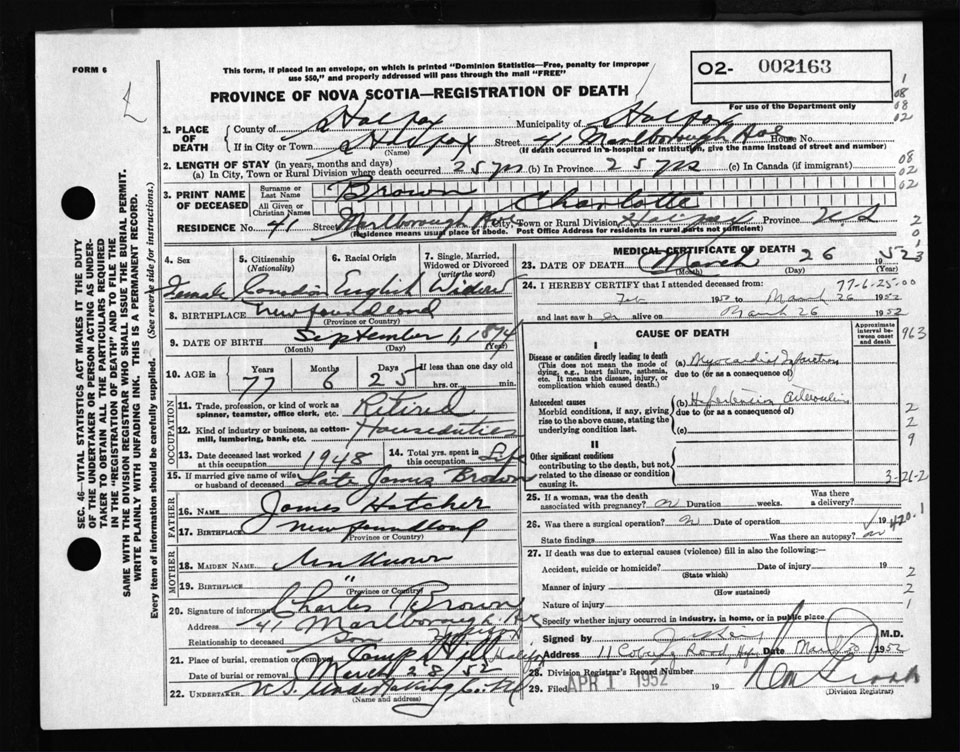 FORM 6
This form, if placed in an envelope, on which is printed "Dominion Statistics—Free, penalty for improper
use $50," and properly addressed will pass through the mail "FREE"
PROVINCE OF NOVA SCOTIA—REGISTRATION OF DEATH
O2- 002163
For use of the Department only
1
08
08
02
1. PLACE OF DEATH
County of Halifax Municipality of Halifax
If in City or Town Halifax Street 41 Marlborough Ave House No.
(Name) (If death occurred in a hospital or Institution, give the name instead of street and number)
2. LENGTH OF STAY (in years, months and days)
(a) In City, Town or Rural Division where death occurred 25 yrs (b) In Province 25 yrs (c) In Canada (if immigrant)
08
02
02
3. PRINT NAME OF DECEASED
Surname or Last Name Brown
All Given or Christian Names Charlotte
RESIDENCE No. 41 Street Marlborough Ave City, Town or Rural Division Halifax Province N.S
(Residence means usual place of abode. Post Office Address for residents in rural parts not sufficient)
SEC. 46—VITAL STATISTICS ACT MAKES IT THE DUTY
OF THE UNDERTAKER OR PERSON ACTING AS UNDER-
TAKER TO OBTAIN ALL THE PARTICULARS REQUIRED
IN THE "REGISTRATION OF DEATH" AND TO FILE THE
SAME WITH THE DIVISION REGISTRAR WHO SHALL ISSUE THE BURIAL PERMIT.
WRITE PLAINLY WITH UNFADING INK. THIS IS A PERMANENT RECORD.
Every item of information should be carefully supplied. (See reverse side for instructions.)
4. Sex
5. Citizenship (Nationality)
6. Racial Origin
7. Single, Married, Widowed or Divorced (write the word)
Female Canadian English Widow
8. BIRTHPLACE Newfoundland
(Province or Country)
9. DATE OF BIRTH September 1, 1874
(Month) (Day) (Year)
10. AGE in Years Months Days If less than one day
77 6 25 hrs. or min.
OCCUPATION
11. Trade, profession, or kind of work as
spinner, teamster, office clerk, etc. Retired
12. Kind of industry or business, as cotton-
mill, lumbering, bank, etc. Houseduties
13. Date deceased last worked
at this occupation 1948
14. Total yrs. spent in
this occupation Life
15. If married give name of wife
or husband of deceased Late James Brown
FATHER
16. NAME James Hatcher
17. BIRTHPLACE Newfoundland
(Province or Country)
MOTHER
18. MAIDEN NAME Unknown
19. BIRTHPLACE "
(Province or Country)
20. Signature of informant Charles Brown
Address 41 Marlborough Ave
Halifax
Relationship to deceased Son
21. Place of burial, cremation or removal Camp Hill Halifax
Date of burial or removal March 28/52
22. UNDERTAKER N.S. Undertaking Co.
(Name and address)
MEDICAL CERTIFICATE OF DEATH
23. DATE OF DEATH March 26 1952
(Month) (Day) (Year)
77-6-25-00
24. I HEREBY CERTIFY that I attended deceased from:
Feb 1952 to March 26 1952
and last saw her alive on March 26 1952
CAUSE OF DEATH
Approximate interval between onset and death
963
I
Disease or condition directly leading to death
(This does not mean the mode of
dying, e.g., heart failure, asthenia,
etc. It means the disease, injury, or
complication which caused death.)
(a) Myocardial Infarction
due to (or as a consequence of)
Antecedent causes
Morbid conditions, if any, giving
rise to the above cause, stating the
underlying condition last.
(b) Hypertension
due to (or as a consequence of)
(c)
2
2
9
II
Other significant conditions
contributing to the death, but not
related to the disease or condition
causing it.
3-26-2
25. If a woman, was the death
associated with pregnancy? Duration weeks.
Was there
a delivery?
26. Was there a surgical operation? Date of operation 19
420.1
State findings Was there an autopsy?
27. If death was due to external causes (violence) fill in also the following:—
Accident, suicide or homicide? Date of injury 19
(State which)
2
Manner of injury
(How sustained)
2
Nature of injury
1
Specify whether injury occurred in industry, in home, or in public place
Signed by M.D.
Address 11 Coburg Road, Hfx. Date March 1952
28. Division Registrar's Record Number
29. Filed APR 1 1952 19
(Division Registrar)